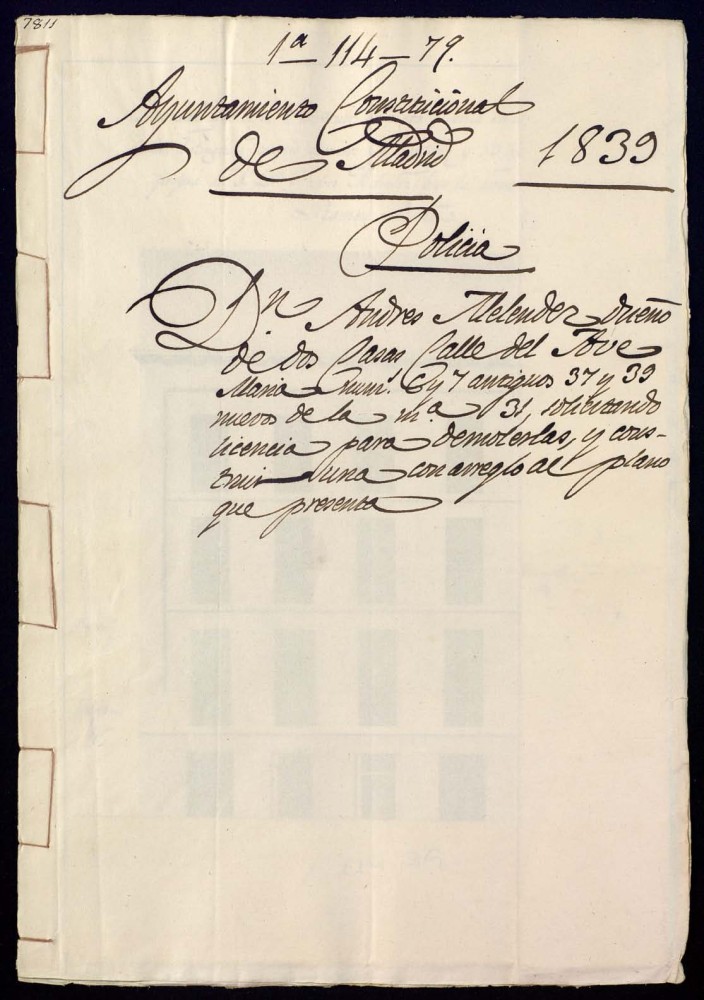 7811
1ª 114-79.
Ayuntamiento Constitucional
de Madrid 1839
Policia
Dn Andres Melendez dueño
de dos Casas Calle del Ave
Maria num.s 6 y 7 antiguos 37 y 39
nuevos de la m.ª 31, solicitando
licencia para demolerlas, y cons-
truir una con arreglo al plano
que presenta